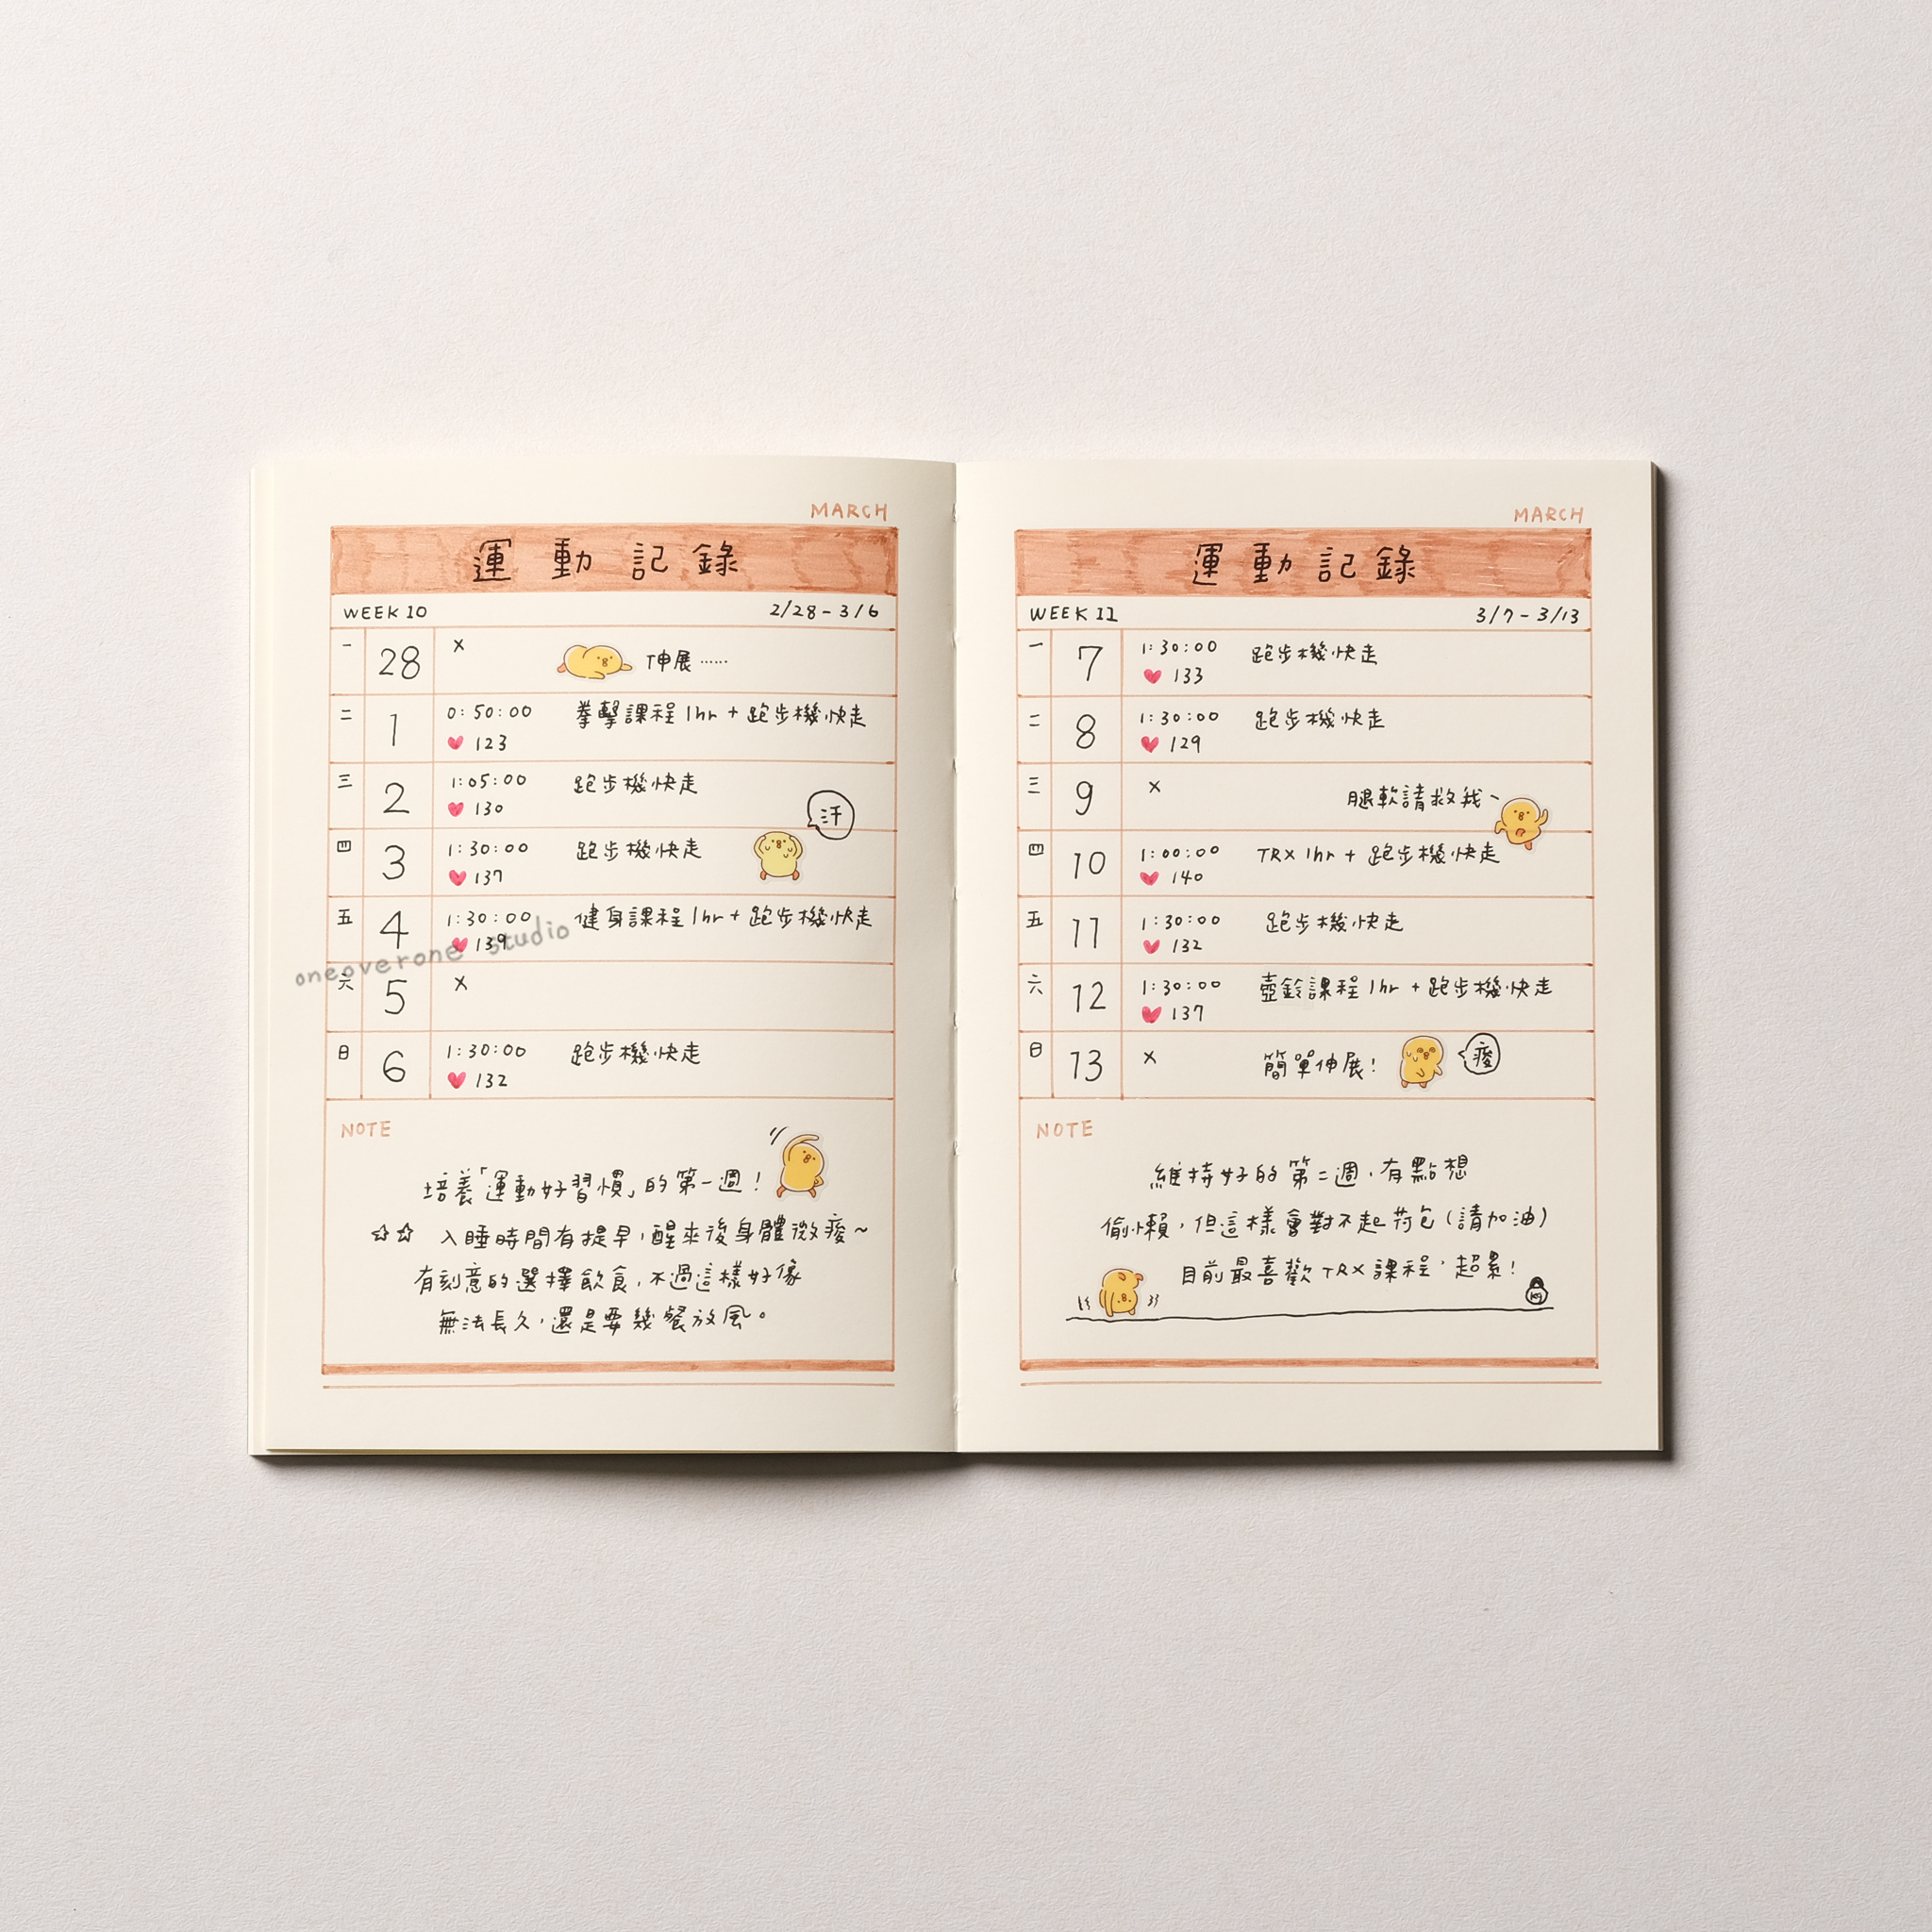 MARCH
運動記錄
WEEK 10 2/28 - 3/6
一 28 x 伸展……
二 1 0:50:00 拳擊課程 1hr + 跑步機快走
123
三 2 1:05:00 跑步機快走
130
汗
四 3 1:30:00 跑步機快走
137
五 4 1:30:00 健身課程 1hr + 跑步機快走
139
oneoverone studio
六 5 x
日 6 1:30:00 跑步機快走
132
NOTE
培養「運動好習慣」的第一週!
入睡時間有提早,醒來後身體微痠~
有刻意的選擇飲食,不過這樣好像
無法長久,還是要幾餐放風。
MARCH
運動記錄
WEEK 11 3/7 - 3/13
一 7 1:30:00 跑步機快走
133
二 8 1:30:00 跑步機快走
129
三 9 x 腿軟請救我~
四 10 1:00:00 TRX 1hr + 跑步機快走
140
五 11 1:30:00 跑步機快走
132
六 12 1:30:00 壺鈴課程 1hr + 跑步機快走
137
日 13 x 簡單伸展! 痠
NOTE
維持好的第二週,有點想
偷懶,但這樣會對不起荷包(請加油)
目前最喜歡TRX課程,超累!